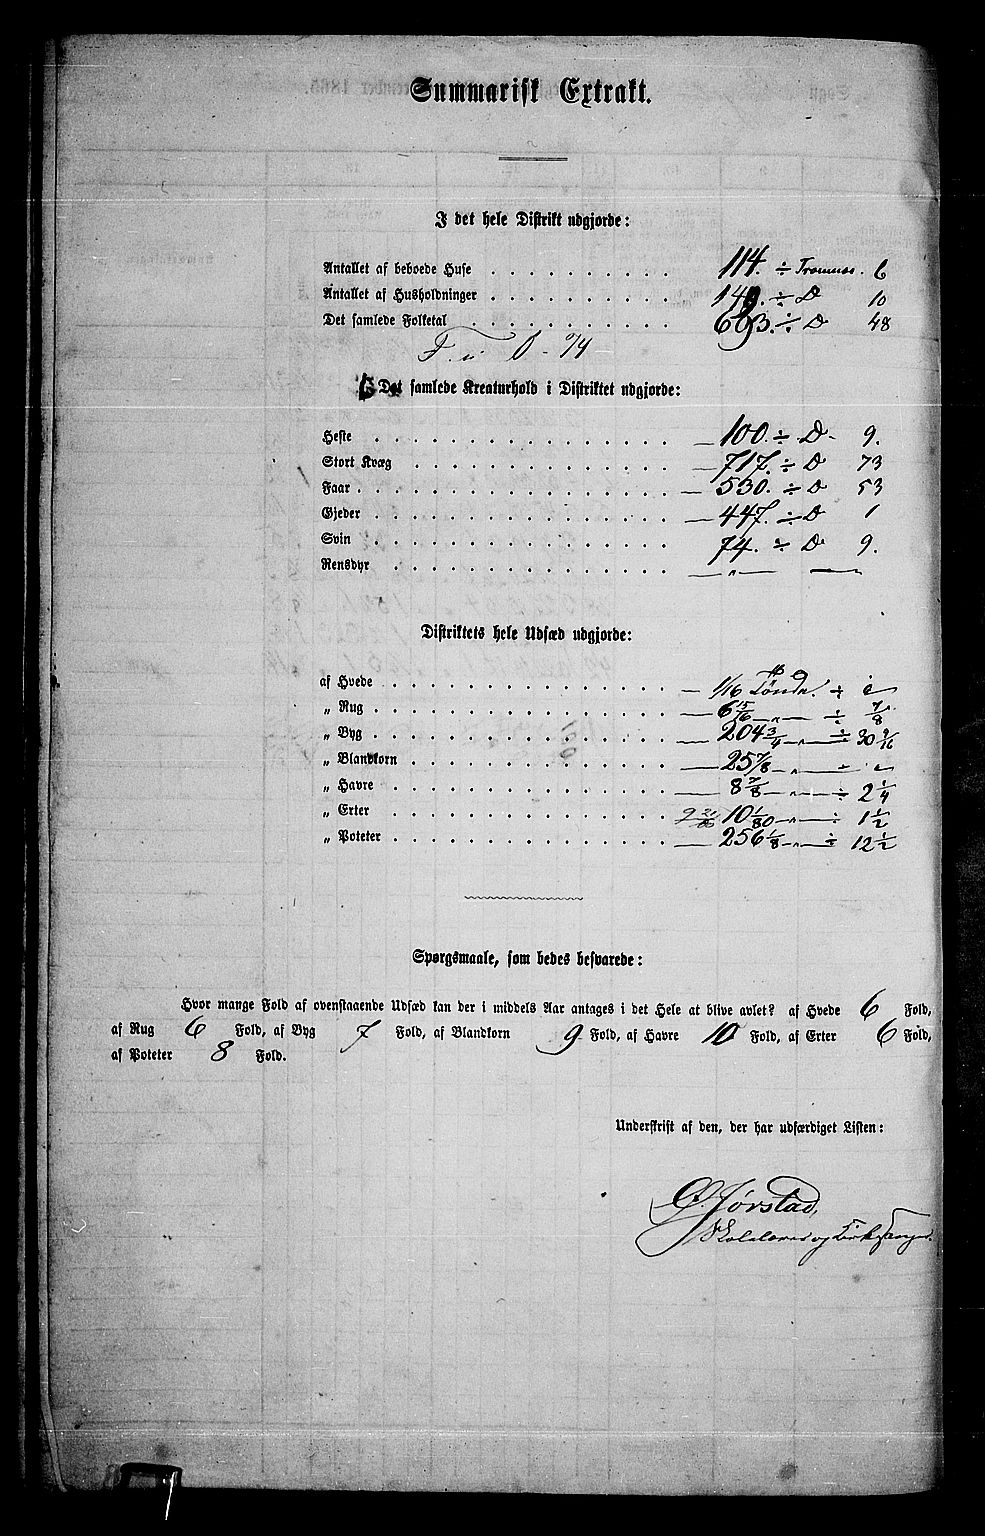 Summarisk Extrakt.
I det hele Distrikt udgjorde:
Antallet af beboede Huse . . . . . . . . . . 114. ÷ Tromnæs. 6
Antallet af Husholdninger . . . . . . . . . . ÷ D 10
Det samlede Folketal . . . . . . . . . . 693. ÷ D 48
Det samlede Kreaturhold i Distriktet udgjorde:
Heste . . . . . . . . . . 100. ÷ D - 9.
Stort Kvæg . . . . . . . . . . 717. ÷ D 73
Faar . . . . . . . . . . 530. ÷ D 53
Gjeder . . . . . . . . . . 447. ÷ D 1
Svin . . . . . . . . . . 74. ÷ D 9.
Rensdyr . . . . . . . . . . — „ — —
Distriktets hele Udsæd udgjorde:
af Hvede . . . . . . . . . . 1/16 Tønde. ÷
„ Rug . . . . . . . . . . 6 15/16 — „ — ÷ 7/8
„ Byg . . . . . . . . . . 204 3/4 — „ — ÷ 30 9/16
„ Blandkorn . . . . . . . . . . 25 7/8 — „ — ÷
„ Havre . . . . . . . . . . 8 7/8 — „ — ÷ 2 1/4
„ Erter . . . . . . . . . . 10 1/80 — „ — ÷ 1 1/2
„ Poteter . . . . . . . . . . 256 1/8 — „ — ÷ 12 1/2
Spørgsmaale, som bedes besvarede:
Hvor mange Fold af ovenstaaende Udsæd kan der i middels Aar antages i det Hele at blive avlet? af Hvede 6 Fold,
af Rug 6 Fold, af Byg 7 Fold, af Blandkorn 9 Fold, af Havre 10 Fold, af Erter 6 Fold,
af Poteter 8 Fold.
Underskrift af den, der har udfærdiget Listen:
Ø. Jørstad,
Skolelærer og Kirkesanger.